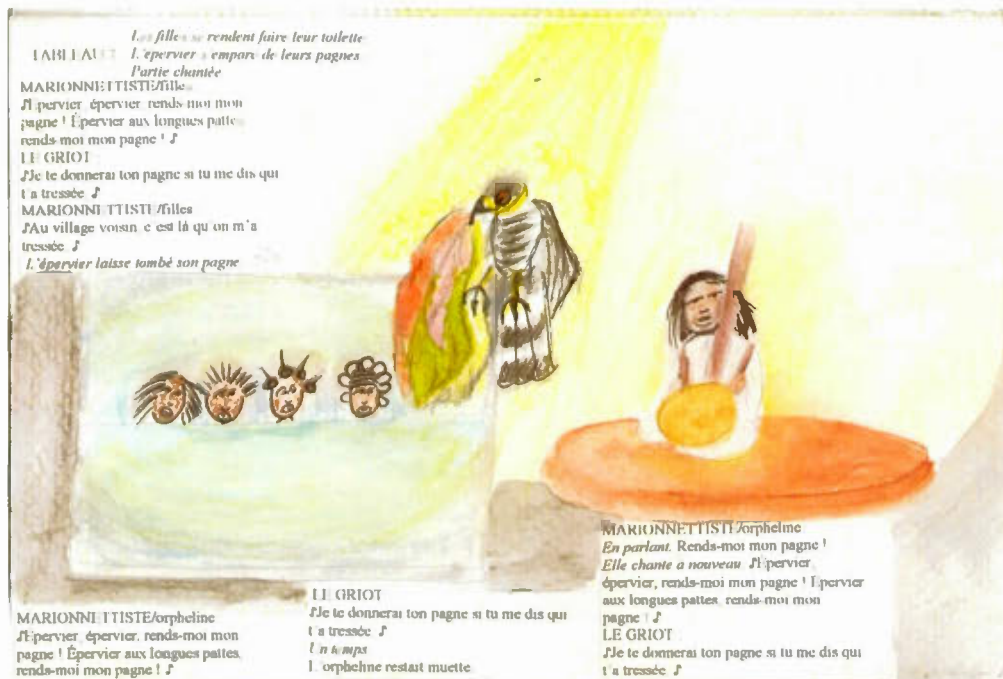 TABLEAU
Les filles se rendent faire leur toilette
L'épervier s'empare de leurs pagnes
Partie chantée
MARIONNETTISTE/filles
♪Epervier, épervier, rends-moi mon
pagne ! Épervier aux longues pattes
rends-moi mon pagne ! ♪
LE GRIOT
♪Je te donnerai ton pagne si tu me dis qui
t'a tressée ♪
MARIONNETTISTE/filles
♪Au village voisin, c'est là qu'on m'a
tressée ♪
L'épervier laisse tombé son pagne
MARIONNETTISTE/orpheline
♪Epervier, épervier, rends-moi mon
pagne ! Épervier aux longues pattes,
rends-moi mon pagne ! ♪
LE GRIOT
♪Je te donnerai ton pagne si tu me dis qui
t'a tressée ♪
Un temps
L'orpheline restait muette
MARIONNETTISTE/orpheline
En parlant. Rends-moi mon pagne !
Elle chante à nouveau ♪Epervier,
épervier, rends-moi mon pagne ! Epervier
aux longues pattes, rends-moi mon
pagne ! ♪
LE GRIOT
♪Je te donnerai ton pagne si tu me dis qui
t'a tressée ♪